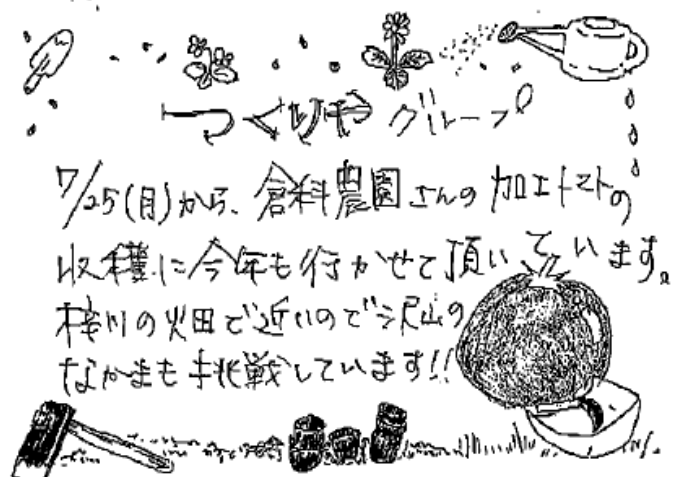 つくりやグループ
7/25(月)から、倉科農園さんの加工トマトの
収穫に今年も行かせて頂いています。
梓川の畑で近いので沢山の
なかまも挑戦しています!!